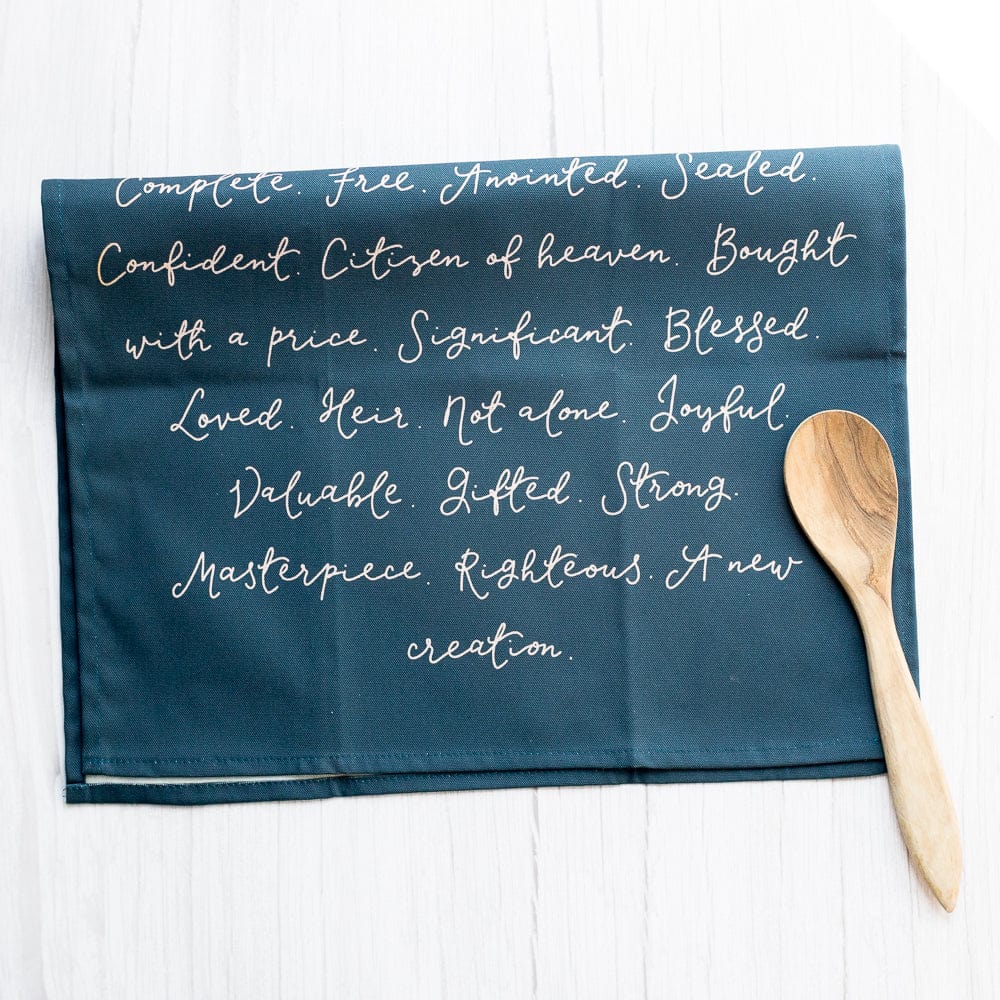 Complete. Free. Anointed. Sealed.
Confident. Citizen of heaven. Bought
with a price. Significant. Blessed.
Loved. Heir. Not alone. Joyful.
Valuable. Gifted. Strong.
Masterpiece. Righteous. A new
creation.